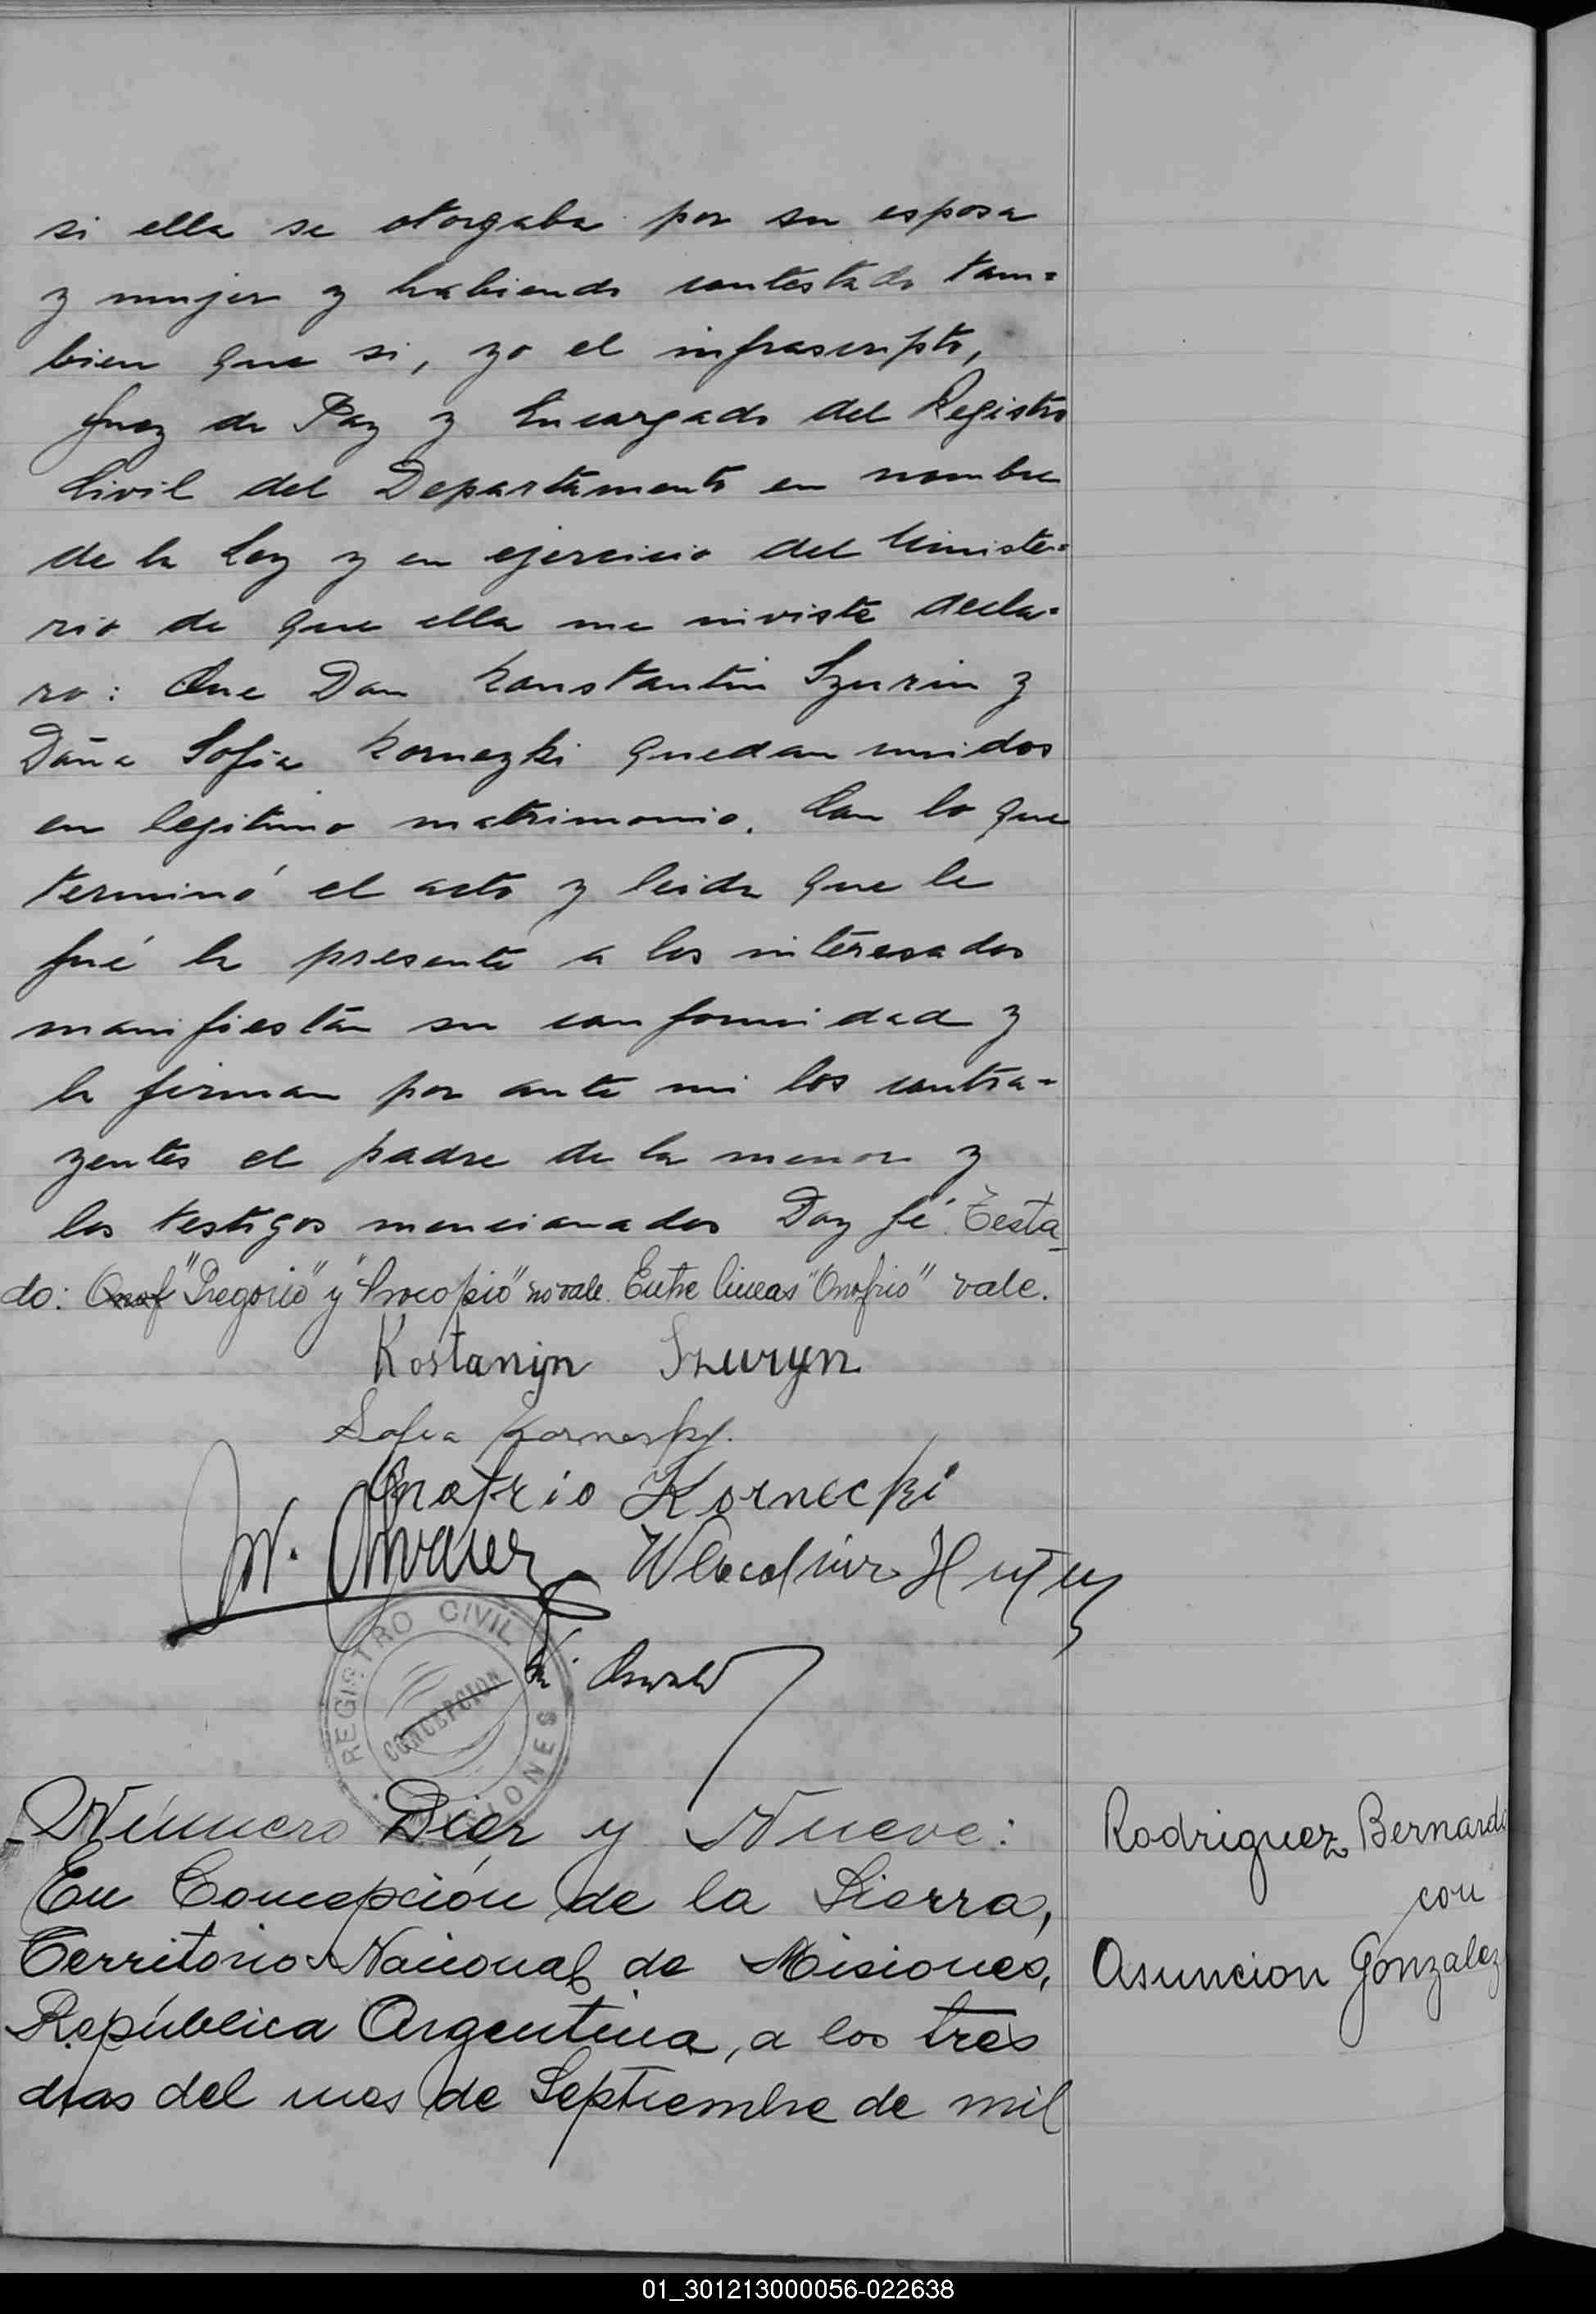 si ella se otorgaba por su esposa
y mujer y habiendo contestado tam=
bien que si, yo el infrascripto,
Juez de Paz y Encargado del Registro
Civil del Departamento en nombre
de la Ley y en ejercicio del Ministe=
rio de que ella me inviste decla=
ro: Que Don Konstantin Szurin y
Doña Sofia Kornezki quedan unidos
en legitimo matrimonio. Con lo que
terminó el acto y leida que le
fué la presente a los interesados
manifiestan su conformidad y
la firman por ante mi los contra=
yentes el padre de la menor y
los testigos mencionados Doy fé. Testa_
do: Onof "Pregorio" y "Procopio" no vale. Entre lineas "Onofrio" vale.
Kostanijn Szuryn
Sofia
Onofrio Kornecki
W. Alvarez Wlocdmir
Oswald
REGISTRO CIVIL
CONCEPCION
MISIONES
Número Diez y Nueve:
Rodriguez Bernardo
con
Asuncion Gonzalez
En Concepción de la Sierra,
Territorio Nacional de Misiones,
República Argentina, a los tres
dias del mes de Septiembre de mil
01_301213000056-022638